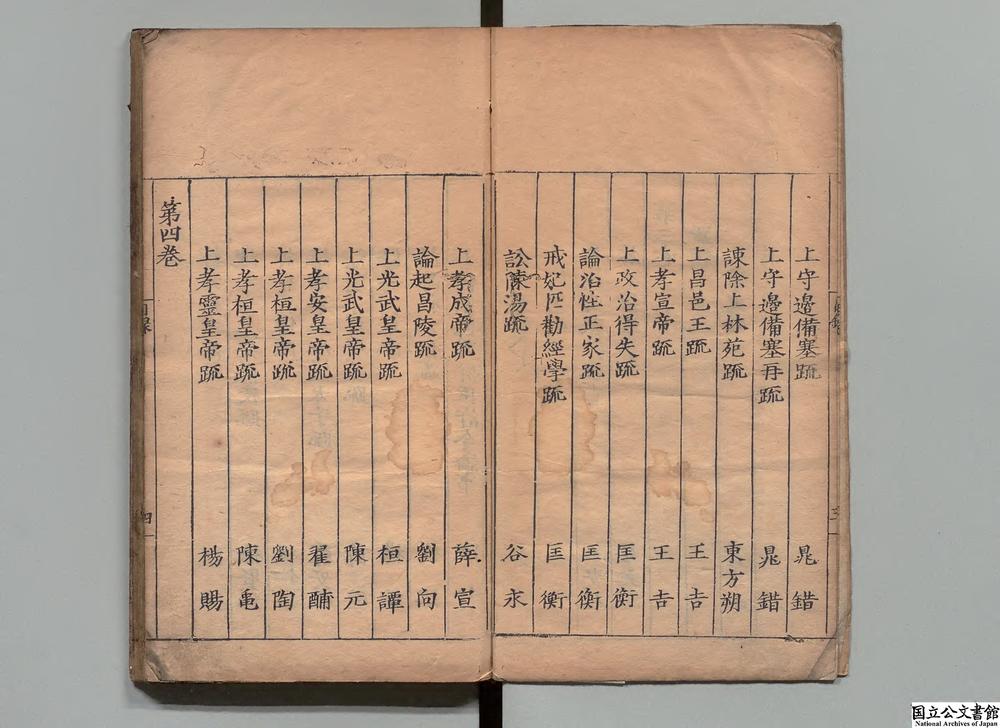 上守邊備塞疏 晁錯
上守邊備塞再疏 晁錯
諫除上林苑疏 東方朔
上昌邑王疏 王吉
上孝宣帝疏 王吉
上政治得失疏 匡衡
論治性正家疏 匡衡
戒妃匹勸經學疏 匡衡
訟陳湯疏 谷永
上孝成帝疏 薛宣
論起昌陵疏 劉向
上光武皇帝疏 桓譚
上光武皇帝疏 陳元
上孝安皇帝疏 翟酺
上孝桓皇帝疏 劉陶
上孝桓皇帝疏 陳龜
上孝靈皇帝疏 楊賜
第四巻
目錄
四
国立公文書館
National Archives of Japan